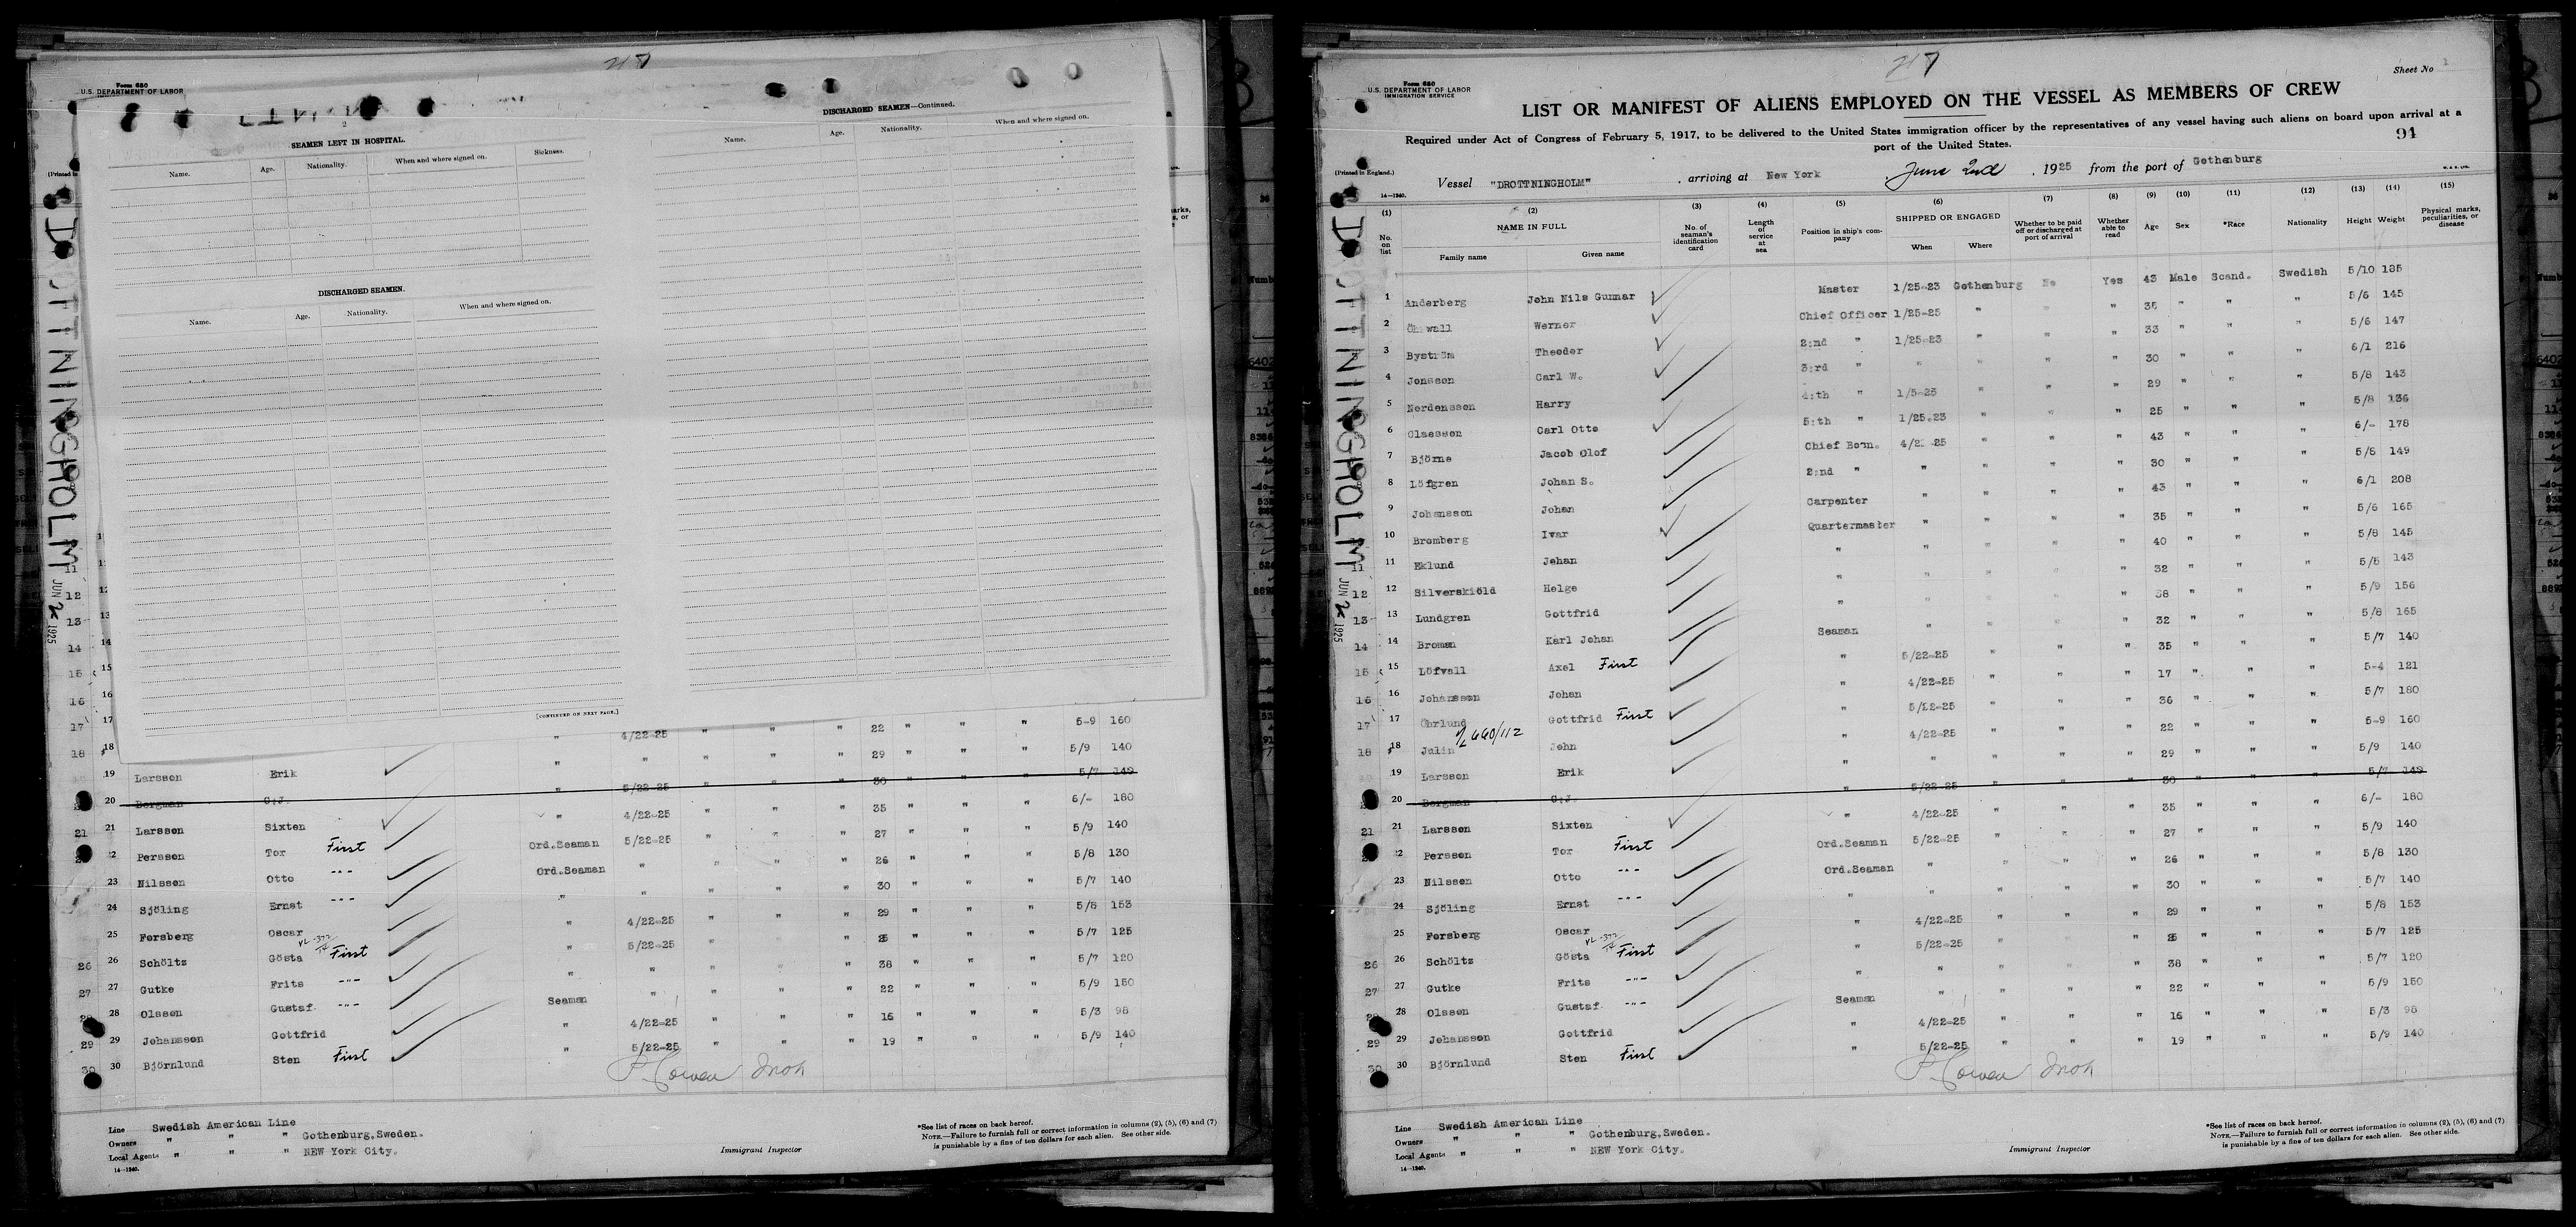 217
Form 680
U.S. DEPARTMENT OF LABOR
2
SEAMEN LEFT IN HOSPITAL.
Name. Age. Nationality. When and where signed on. Sickness.
DISCHARGED SEAMEN.
Name. Age. Nationality. When and where signed on.
DISCHARGED SEAMEN—Continued.
Name. Age. Nationality. When and where signed on.
[CONTINUED ON NEXT PAGE.]
DROTTNINGHOLM JUN 2 1925
" 4/22-25 " " " 22 " " " 5-9 160
18 " " " " " 29 " " " 5/9 140
19 Larsson Erik " 5/22-25 " " " 30 " " " 5/7 149
20 Bergman C.J. " 4/22-25 " " " 35 " " " 6/- 180
21 Larsson Sixten Ord.Seaman 5/22-25 " " " 27 " " " 5/9 140
22 Persson Tor First Ord.Seaman " " " " 26 " " " 5/8 130
23 Nilsson Otto -"- " " " " " 30 " " " 5/7 140
24 Sjöling Ernst -"- " 4/22-25 " " " 29 " " " 5/8 153
25 Forsberg Oscar " 5/22-25 " " " 25 " " " 5/7 125
26 Schöltz Gösta First " " " " " 38 " " " 5/7 120
27 Gutke Frits -"- Seaman " " " " 22 " " " 5/9 150
28 Olsson Gustaf -"- " 4/22-25 " " " 16 " " " 5/3 98
29 Johansson Gottfrid " 5/22-25 " " " 19 " " " 5/9 140
30 Björnlund Sten First
Line Swedish American Line
Owners " " " Gothenburg,Sweden.
Local Agents " " " NEW York City.
14—1240.
Immigrant Inspector
*See list of races on back hereof.
NOTE.—Failure to furnish full or correct information in columns (2), (5), (6) and (7)
is punishable by a fine of ten dollars for each alien. See other side.
217
Form 680
U.S. DEPARTMENT OF LABOR
IMMIGRATION SERVICE
Sheet No 1
LIST OR MANIFEST OF ALIENS EMPLOYED ON THE VESSEL AS MEMBERS OF CREW
Required under Act of Congress of February 5, 1917, to be delivered to the United States immigration officer by the representatives of any vessel having such aliens on board upon arrival at a
port of the United States.
94
(Printed in England.)
Vessel "DROTTNINGHOLM" , arriving at New York , June 2nd , 1925 from the port of Gothenburg
14—1240.
(1) (2) (3) (4) (5) (6) (7) (8) (9) (10) (11) (12) (13) (14) (15)
No. on list NAME IN FULL Family name Given name No. of seaman's identification card Length of service at sea Position in ship's company SHIPPED OR ENGAGED When Where Whether to be paid off or discharged at port of arrival Whether able to read Age Sex *Race Nationality Height Weight Physical marks, peculiarities, or disease
1 Anderberg John Nils Gunnar Master 1/25-23 Gothenburg No Yes 43 Male Scand. Swedish 5/10 185
2 Öhrwall Werner Chief Officer 1/25-25 " " " 35 " " " 5/6 145
3 Byström Theodor 2:nd " 1/25-23 " " " 33 " " " 5/6 147
4 Jonsson Carl W. 3:rd " " " " " 30 " " " 6/1 216
5 Nordensson Harry 4:th " 1/5-25 " " " 29 " " " 5/8 143
6 Claesson Carl Otto 5:th " 1/25.23 " " " 25 " " " 5/8 136
7 Björns Jacob Olof Chief Bosn. 4/22-25 " " " 43 " " " 6/- 178
8 Löfgren Johan S. 2:nd " " " " " 30 " " " 5/8 149
9 Johansson Johan Carpenter " " " " 43 " " " 6/1 208
10 Bromberg Ivar Quartermaster " " " " 35 " " " 5/6 165
11 Eklund Johan " " " " " 40 " " " 5/8 145
12 Silverskiöld Helge " " " " " 32 " " " 5/5 143
13 Lundgren Gottfrid " " " " " 38 " " " 5/9 156
14 Broman Karl Johan Seaman " " " " 32 " " " 5/8 165
15 Löfvall Axel First " 5/22-25 " " " 35 " " " 5/7 140
16 Johansson Johan " 4/22-25 " " " 17 " " " 5-4 121
17 Öhrlund Gottfrid First " 5/22-25 " " " 36 " " " 5/7 180
18 Julin John " 4/22-25 " " " 22 " " " 5-9 160
19 Larsson Erik " " " " " 29 " " " 5/9 140
20 Bergman C.J. " 5/22-25 " " " 30 " " " 5/7 149
21 Larsson Sixten " 4/22-25 " " " 35 " " " 6/- 180
22 Persson Tor First Ord.Seaman 5/22-25 " " " 27 " " " 5/9 140
23 Nilsson Otto -"- Ord.Seaman " " " " 26 " " " 5/8 130
24 Sjöling Ernst -"- " " " " " 30 " " " 5/7 140
25 Forsberg Oscar " 4/22-25 " " " 29 " " " 5/8 153
26 Schöltz Gösta First " 5/22-25 " " " 25 " " " 5/7 125
27 Gutke Frits -"- " " " " " 38 " " " 5/7 120
28 Olsson Gustaf -"- Seaman " " " " 22 " " " 5/9 150
29 Johansson Gottfrid " 4/22-25 " " " 16 " " " 5/3 98
30 Björnlund Sten First " 5/22-25 " " " 19 " " " 5/9 140
DROTTNINGHOLM JUN 2 1925
Line Swedish American Line
Owners " " " Gothenburg,Sweden.
Local Agents " " " NEW York City.
14—1240.
Immigrant Inspector
*See list of races on back hereof.
NOTE.—Failure to furnish full or correct information in columns (2), (5), (6) and (7)
is punishable by a fine of ten dollars for each alien. See other side.